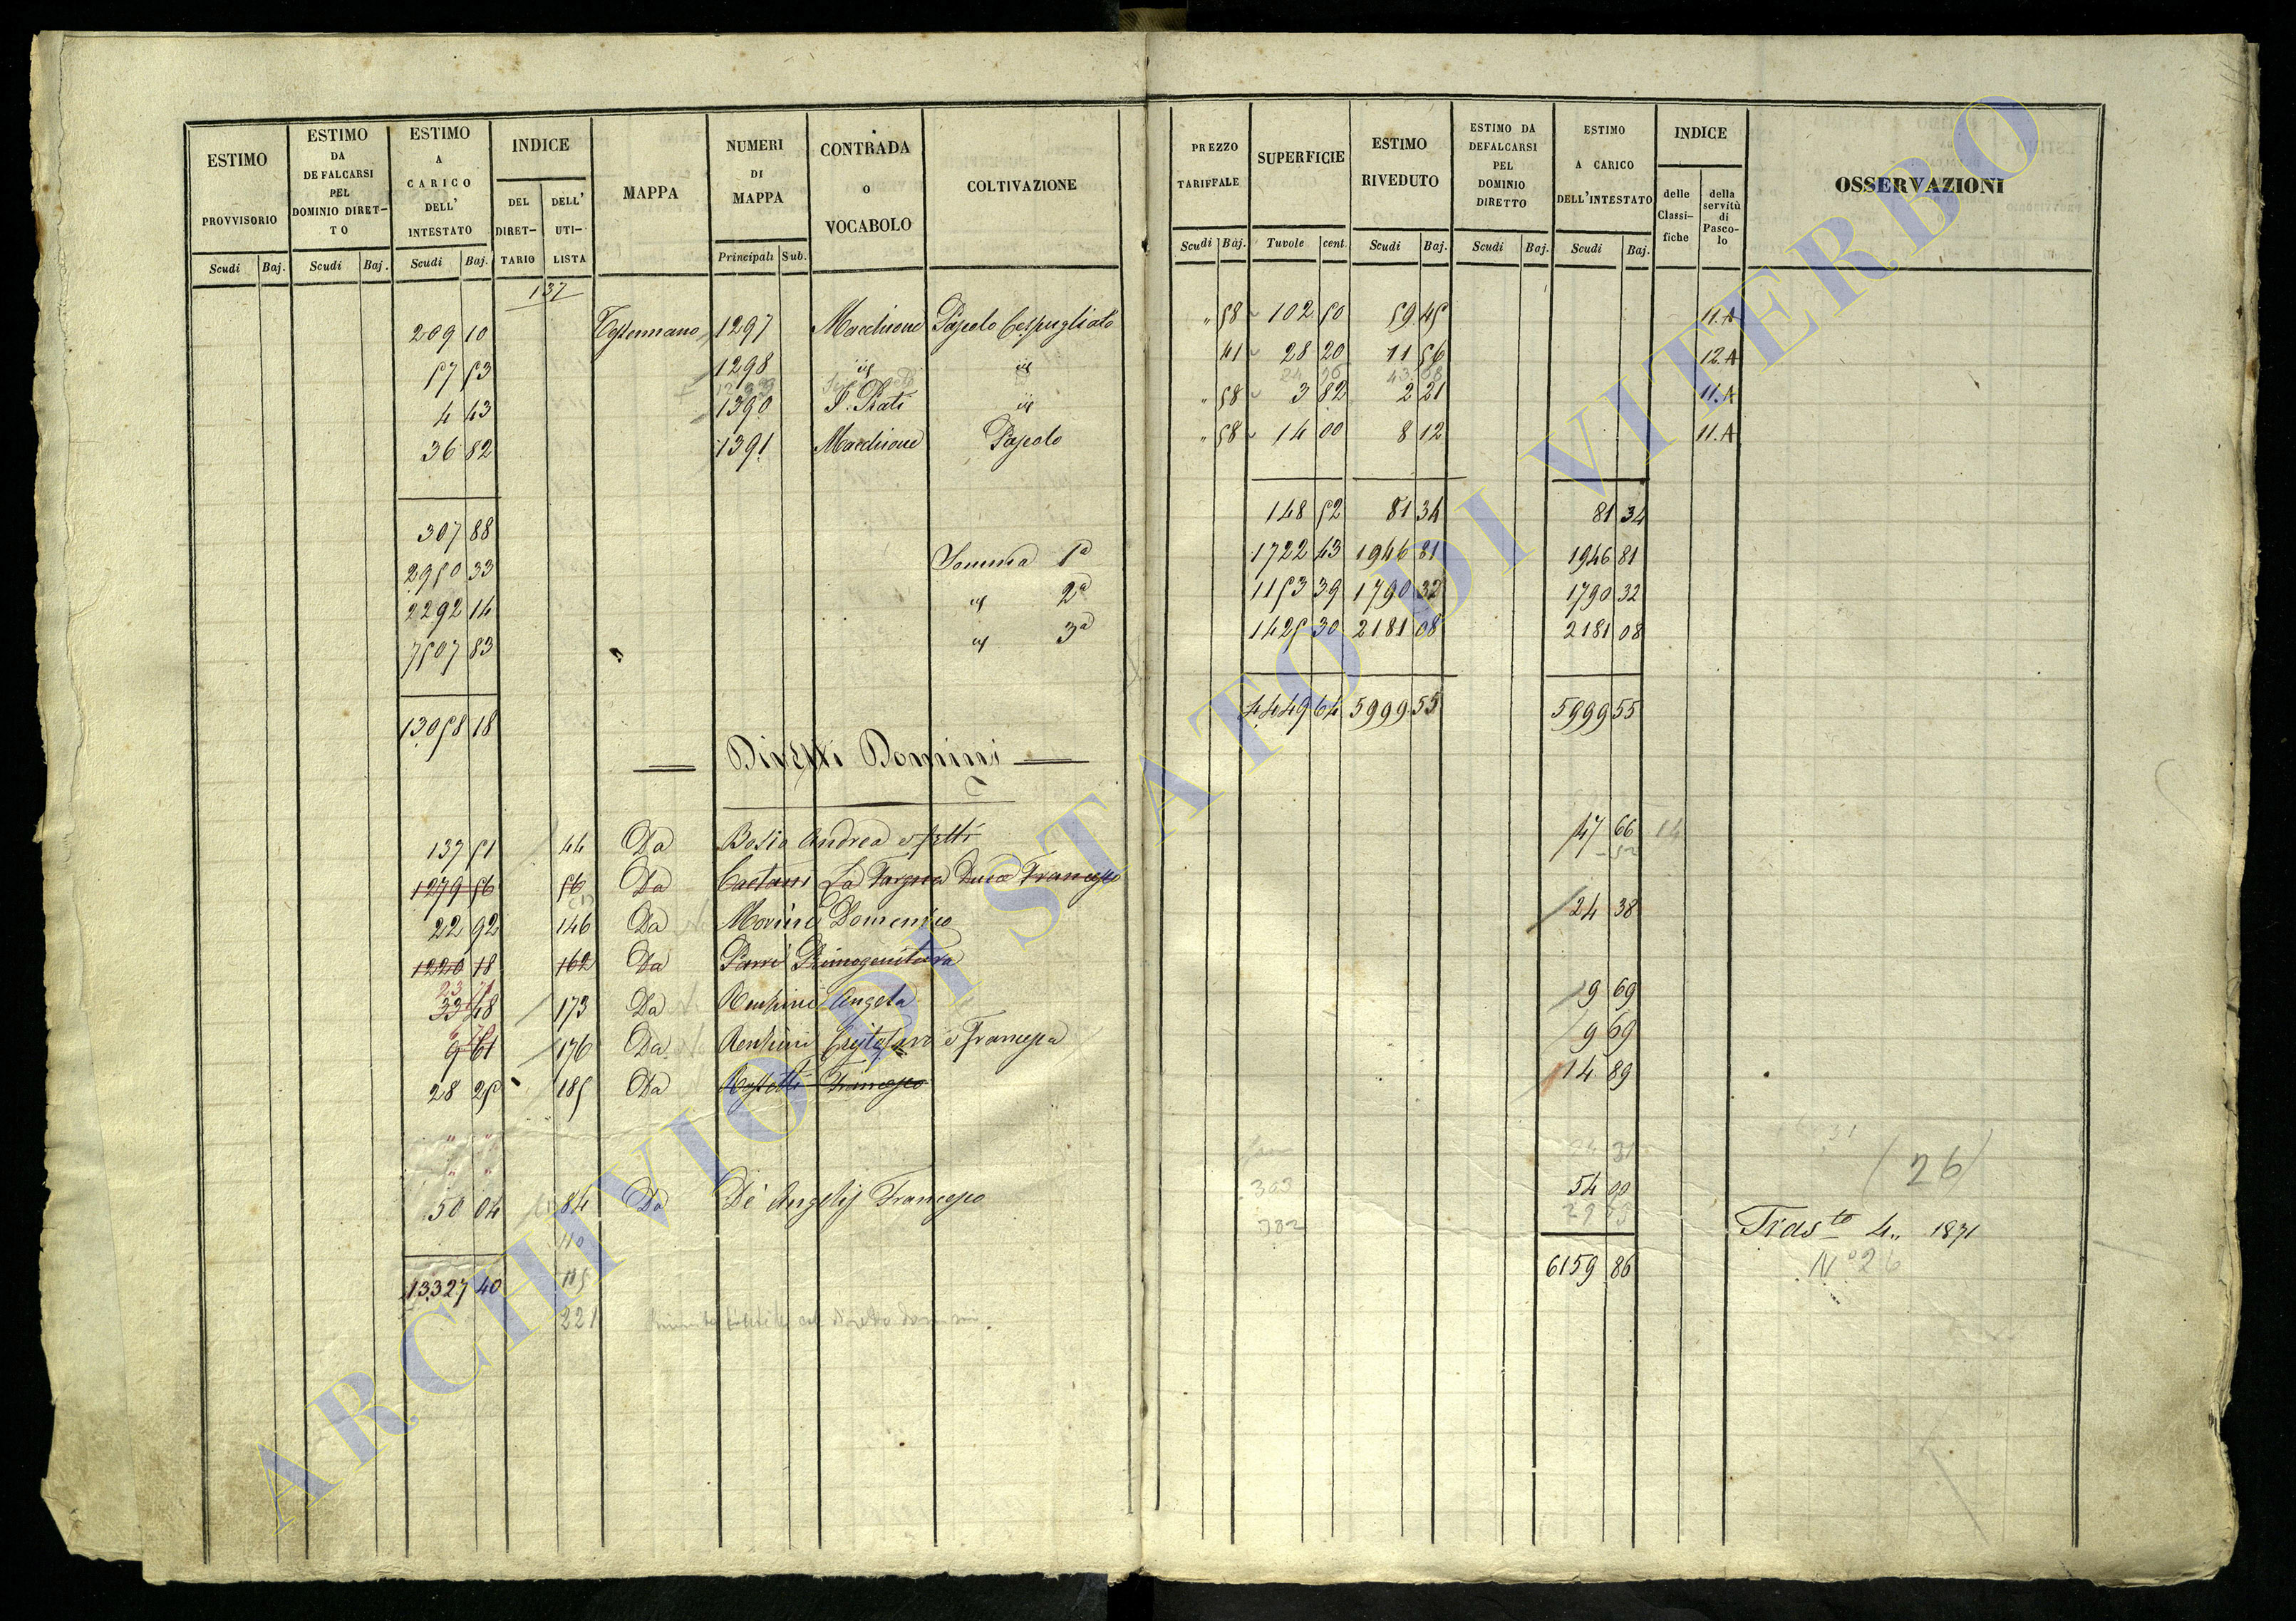 ESTIMO PROVVISORIO Scudi Baj.
ESTIMO DA DEFALCARSI PEL DOMINIO DIRET- TO Scudi Baj.
ESTIMO A CARICO DELL' INTESTATO Scudi Baj.
INDICE DEL DIRET- TARIO DELL' UTI- LISTA
MAPPA
NUMERI DI MAPPA Principali Sub.
CONTRADA O VOCABOLO
COLTIVAZIONE
PREZZO TARIFFALE Scudi Baj.
SUPERFICIE Tavole cent.
ESTIMO RIVEDUTO Scudi Baj.
ESTIMO DA DEFALCARSI PEL DOMINIO DIRETTO Scudi Baj.
ESTIMO A CARICO DELL'INTESTATO Scudi Baj.
INDICE delle Classi- fiche della servitù di Pasco- lo
OSSERVAZIONI
137
209 10 1297 Macchione Pascolo Cespugliato " 58 102 50 59 45 11.A
57 53 1298 id id 41 28 20 11 56 12.A
4 43 1390 S. Prati id " 58 3 82 2 21 11.A
36 82 1391 Macchione Pascolo " 58 14 00 8 12 11.A
307 88 148 52 81 34 81 34
2950 33 Somma 1a 1722 43 1946 81 1946 81
2292 14 id 2a 1153 39 1790 32 1790 32
7507 83 id 3a 1425 30 2181 08 2181 08
13058 18 4449 64 5999 55 5999 55
Diretti Domini
137 51 44 Da Bosio Andrea e frlli 47 66 14
1279 56 56 Da Caetani La Fargna Duca Francesco
22 92 146 Da Morini Domenico 24 38
1220 18 162 Da Parri Primogenitura
23 71
33 48 173 Da Rensini Angela 9 69
9 61 176 Da Rensini Cristoforo e Francesca 9 69
28 25 185 Da Rossetti Francesco 14 89
(26)
50 04 84 Da De Angelis Francesco 303 54 00
Trasto 4.. 1831
110 302
13327 40 6159 86 No 26
221
ARCHIVIO DI STATO DI VITERBO